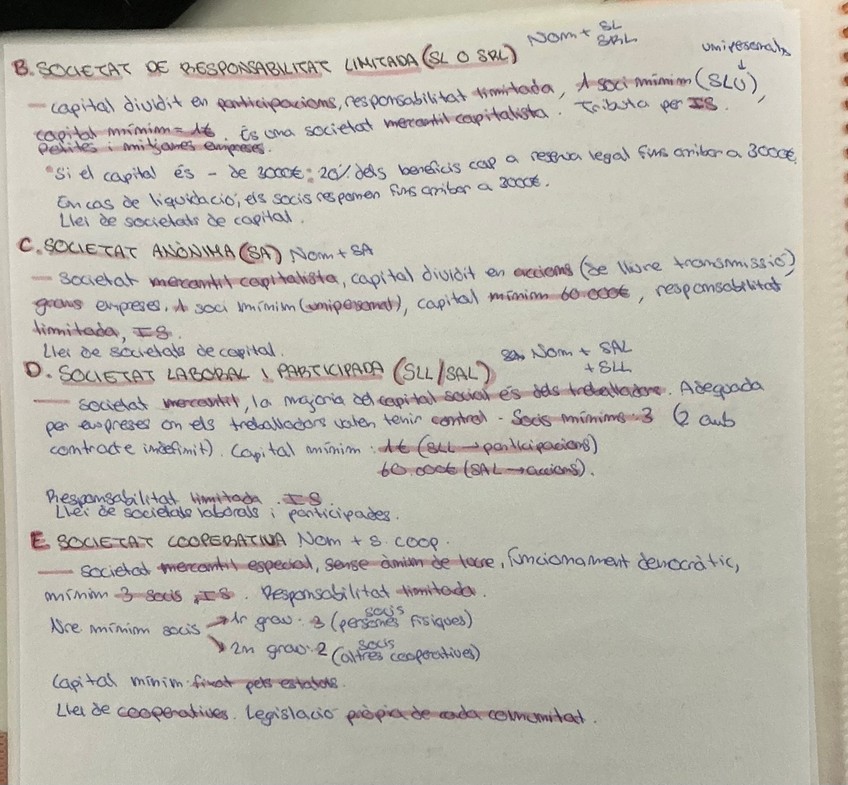 Nom + SL
SRL
unipersonals
B. SOCIETAT DE RESPONSABILITAT LIMITADA (SL O SRL)
— capital dividit en participacions, responsabilitat limitada, 1 soci mínim (SLU),
capital mínim = 1€. És una societat mercantil capitalista. Tributa per IS.
Petites i mitjanes empreses.
*Si el capital és - de 3000€: 20% dels beneficis cap a reserva legal fins arribar a 3000€.
En cas de liquidació, els socis responen fins arribar a 3000€.
Llei de societats de capital.
C. SOCIETAT ANÒNIMA (SA) Nom + SA
— Societat mercantil capitalista, capital dividit en accions (de lliure transmissió)
grans empreses. 1 soci mínim (unipersonal), capital mínim 60.000€, responsabilitat
limitada, IS.
Llei de societats de capital.
D. SOCIETAT LABORAL I PARTICIPADA (SLL/SAL) Nom + SAL
+ SLL
— Societat mercantil, la majoria del capital social és dels treballadors. Adequada
per empreses on els treballadors volen tenir control - Socis mínims: 3 (2 amb
contracte indefinit). Capital mínim: 1€ (SLL → participacions)
60.000€ (SAL → accions).
Responsabilitat limitada. IS.
Llei de societats laborals i participades.
E SOCIETAT COOPERATIVA Nom + S. COOP.
— societat mercantil especial, sense ànim de lucre, funcionament democràtic,
mínim 3 socis, IS. Responsabilitat limitada.
Nre mínim socis → 1r grau: 3 (persones físiques) socis
→ 2n grau: 2 (altres cooperatives) socis
Capital mínim: fixat pels estatuts.
Llei de cooperatives. Legislació pròpia de cada comunitat.